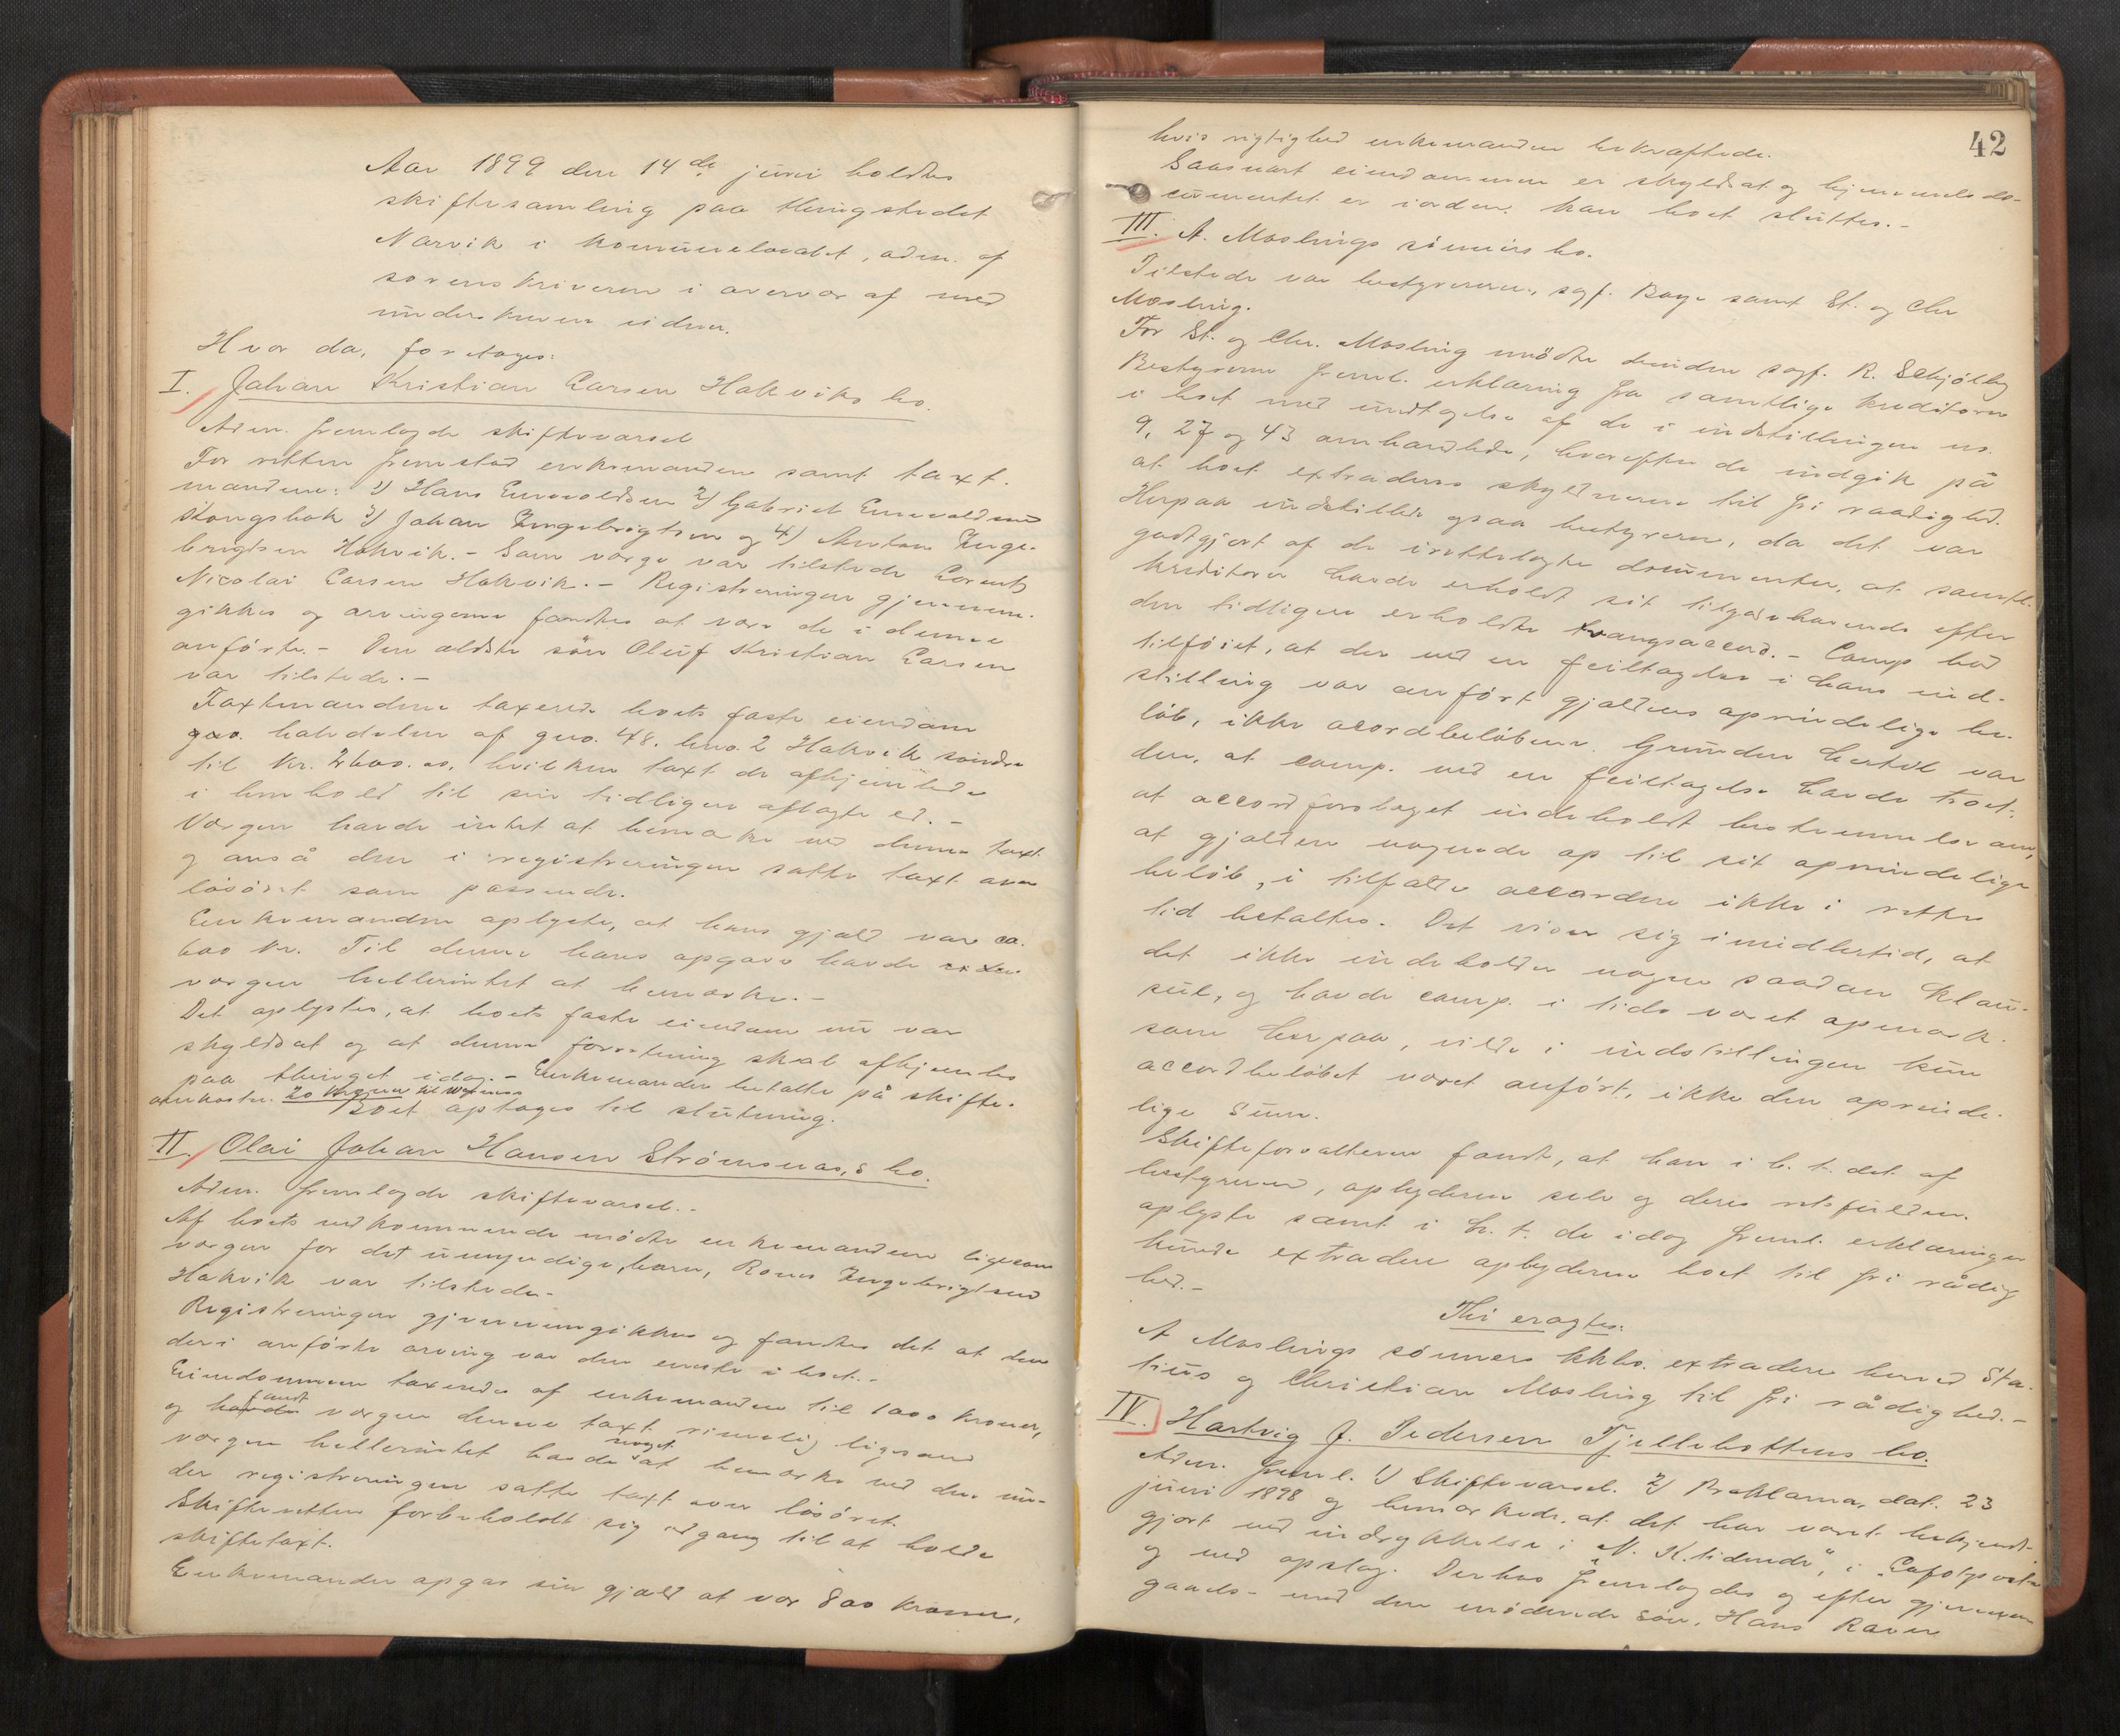 Aar 1899 den 14de juni holdtes
skiftesamling paa thingstedet
Narvik i kommunelocalet, adm. af
sorenskriveren i overvær af med
underskrevne vidner.
Hvor da, foretoges:
I. Johan Kristian Larsen Hakviks bo.
Adm. fremlagde skiftevarsel
For retten fremstod enkemanden samt taxt-
mændene: 1) Hans Enevoldsen 2) Gabriel Enevoldsen
Skongsbak 3) Johan Ingebrigtsen og 4) Anton Inge-
brigtsen Hakvik. - Som værge var tilstede Lorents
Nicolai Larsen Hakvik. - Registreringen gjennem-
gikkes og arvingerne fandtes at være de i denne
anførte. - Den ældste søn Oluf Kristian Larsen
var tilstede. -
Taxtmændene taxerede boets faste eiendom
halvdelen af gno. 48. bno. 2 Hakvik søndre
til Kr. 2600.00, hvilken taxt de afhjemlede
i henhold til sin tidligere aflagte ed. -
Værgen havde intet at bemærke ved denne taxt
og anså den i registreringen satte taxt over
løsøret som passende.
Enkemanden oplyste, at hans gjæld var ca.
600 kr. Til denne hans opgave havde
værgen hellerintet at bemærke. -
Det oplystes, at boets faste eiendom nu var
skyldsat og at denne forretning skal afhjemles
paa thinget idag. - Enkemanden betalte på skifte-
omkostn. 20 kroner til
Boet optoges til slutning.
II. Olai Johan Hansen Strømsnæs,s bo.
Adm. fremlagde skiftevarsel. -
Af boets vedkommende mødte enkemanden ligesom
værgen for det umyndige barn, Rones Ingebrigtsen
Hakvik var tilstede. -
Registreringen gjennemgikkes og fandtes det at den
deri anførte arving var den eneste i boet. -
Eiendommen taxeredes af enkemanden til 1000 kroner,
og fandt værgen denne taxt rimelig ligesom
værgen hellerintet havde noget at bemærke ved den un-
der registreringen satte taxt over løsøret.
Skifteretten forbeholdt sig adgang til at holde
skiftetaxt.
Enkemanden opgav sin gjæld at være 800 kroner,
42
hvis rigtighed enkemanden bekræftede.
Saasnart eiendommen er skyldsat og hjemmelsdo-
cumentet er iorden kan boet sluttes. -
III. A. Moslings sønners bo.
Tilstede var bestyreren, sagf. Boye samt St. og Chr
Mosling.
For St. og Chr. Mosling mødte desuden sagf. R. Schjölberg
Bestyreren freml. erklæring fra samtlige kreditorer
i boet med undtagelse af de i indstillingen no.
9, 27 og 43 omhandlede, hvorefter de indgik på
at boet extraderes skyldnerne til fri raadighed.
Herpaa indstillede ogsaa bestyreren, da det var
godtgjort af de irettelagte documenter, at samtl.
kreditorer havde erholdt sit tilgodehavende efter
den tidligere erholdte tvangsaccord. - Comp. bad
tilføiet, at der ved en feiltagelse i hans ind-
stilling var anført gjældens oprindelige be-
løb, ikke acordbeløbene. Grunden hertil var
den, at comp. ved en feiltagelse havde troet,
at accordforslaget indeholdt bestemmelse om,
at gjælden vognede op til sit oprindelige
beløb, i tilfælde accorden ikke i rette
tid betaltes. Det viser sig imidlertid, at
det ikke indeholder nogen saadan klau-
sul, og havde comp. i tide været opmærk-
som herpaa, vilde i indstillingen kun
accordbeløbet været anført, ikke den oprinde-
lige sum.
Skifteforvalteren fandt, at han i h. t. det af
bestyreren, opbyderen selv og deres retsfuldm.
oplyste samt i h. t. de idag freml. erklæringer
kunde extradere opbyderne boet til fri rådig
hed. -
Thi eragtes:
A Moslings sønners kkbo. extraderes herved Sta-
tius og Christian Mosling til fri rådighed. -
IV. Hartvig J. Pedersen Fjellebottens bo.
Adm. freml. 1) Skiftevarsel. 2) Proklama, dat. 23
juni 1898 og bemærkede, at det har været bekjendt-
gjort ved indrykkelse i "N. K.tidende", i "Lofotposten
og ved opslag. Derhos fremlagdes og efter gjennem
gaaels- med den mødende søn, Hans Raven